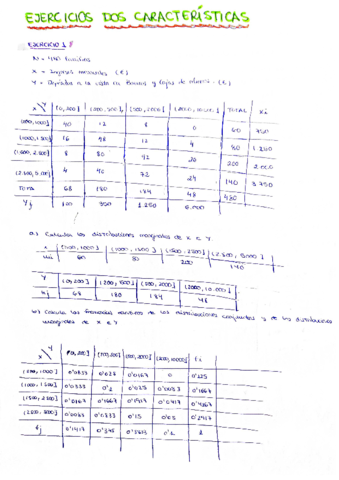 EJERCICIOS DOS CARACTERÍSTICAS
EJERCICIO 1:
N = 480 familias
X = Ingresos mensuales (€)
Y = Depósitos a la vista en Bancos y Cajas de ahorro (€)
X Y (0,200] (200,500] (500,2000] (2000,10.000] TOTAL Xi
(500,1000] 40 12 8 0 60 750
(1000,1500] 16 48 12 4 80 1.250
(1.500, 2.500] 8 80 92 20 200 2.000
(2.500, 5.000] 4 40 72 24 140 3.750
TOTAL 68 180 184 48 480
Yj 100 350 1.250 6.000
a) Calcular las distribuciones marginales de X e Y.
X (500,1000] (1000,1500] (1500,2500] (2.500, 5000]
ni. 60 80 200 140
Y (0,200] (200,500] (500,2000] (2000,10.000]
n.j 68 180 184 48
b) Calcula las frecuencias relativas de las distribuciones conjuntas y de las distribuciones
marginales de X e Y
X Y (0,200] (200,500] (500,2000] (2000,10000] fi
(500,1000] 0'0833 0'025 0'0167 0 0'125
(1000,1500] 0'0333 0'1 0'025 0'0083 0'1667
(1500,2500] 0'0167 0'1667 0'1917 0'0417 0'4167
(2500,5000] 0'0083 0'0833 0'15 0'05 0'2917
fj 0'1417 0'375 0'3833 0'1 1